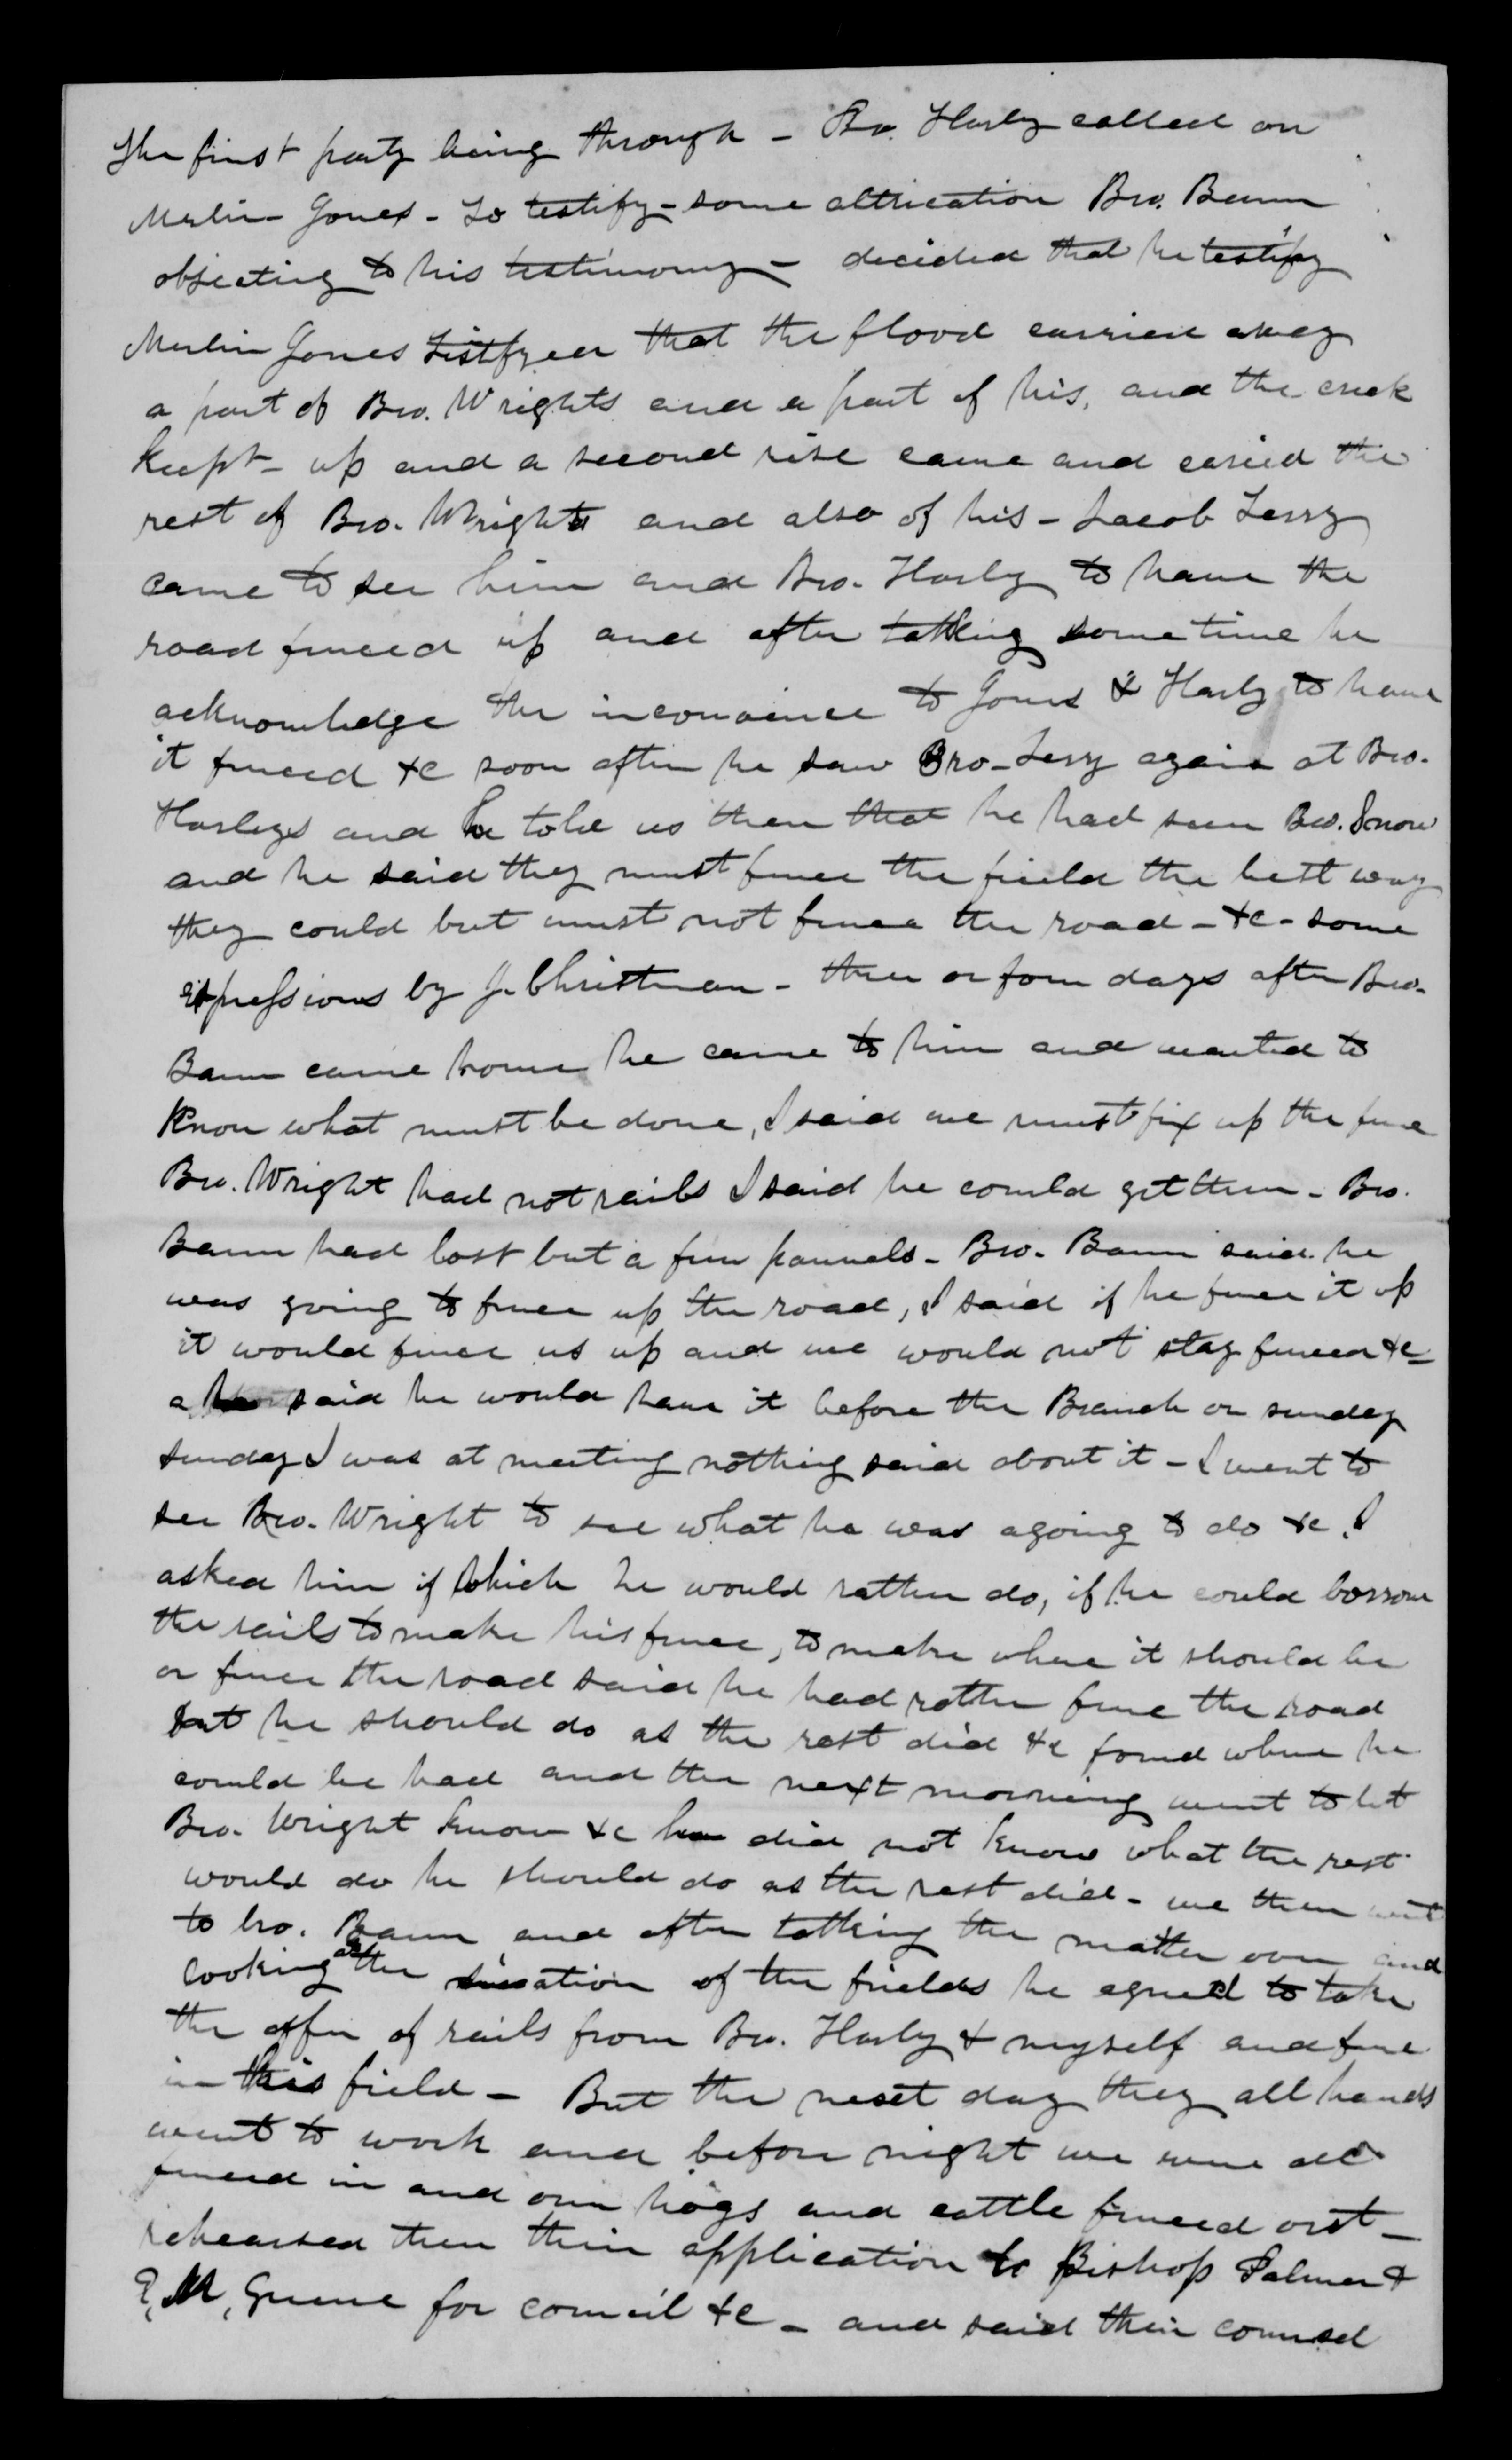 The first party being through - Bro. Harley called on
Merlin Jones - to testify - some altrication Bro. Baum
objecting to his testimony - decided that he testify
Merlin Jones testifyed that the flood carried away
a part of Bro. Wrights and a part of his, and the creek
kept up and a second rise came and caried the
rest of Bro. Wrights and also of his - Jacob Terry
came to see him and Bro. Harley to have the
road fenced up and after talking some time he
acknowledge the inconvience to Jones & Harley to have
it fenced &c soon after he saw Bro. Terry again at Bro.
Harleys and he told us then that he had seen Bro. Snow
and he said they must fence the field the best way
they could but must not fence the road - &c - some
expressions by J. Christman - three or four days after Bro.
Baum came home he came to him and wanted to
know what must be done, I said we must fix up the fence
Bro. Wright had not rails I said he could get them - Bro.
Baum had lost but a few pannels - Bro. Baum said he
was going to fence up the road, I said if he fence it up
it would fence us up and we would not stay fenced &c
a said he would have it before the Branch on sunday
sunday I was at meeting nothing said about it - I went to
see Bro. Wright to see what he was agoing to do &c. I
asked him if which he would rather do, if he could borrow
the rails to make his fence, to make where it should be
or fence the road said he had rather fence the road
but he should do as the rest did &c found where he
could be had and the next morning went to let
Bro. Wright know &c he did not know what the rest
would do he should do as the rest did - we then went
to bro. Baum and after talking the matter over and
looking at the situation of the fields he agreed to take
the offer of rails from Bro. Harley & myself and fence
in this field - But the next day they all hands
went to work and before night we were all
fenced in and our hogs and cattle fenced out -
rehearsed then their application to Bishop Palmer &
E. M. Greene for council &c - and said their counsel